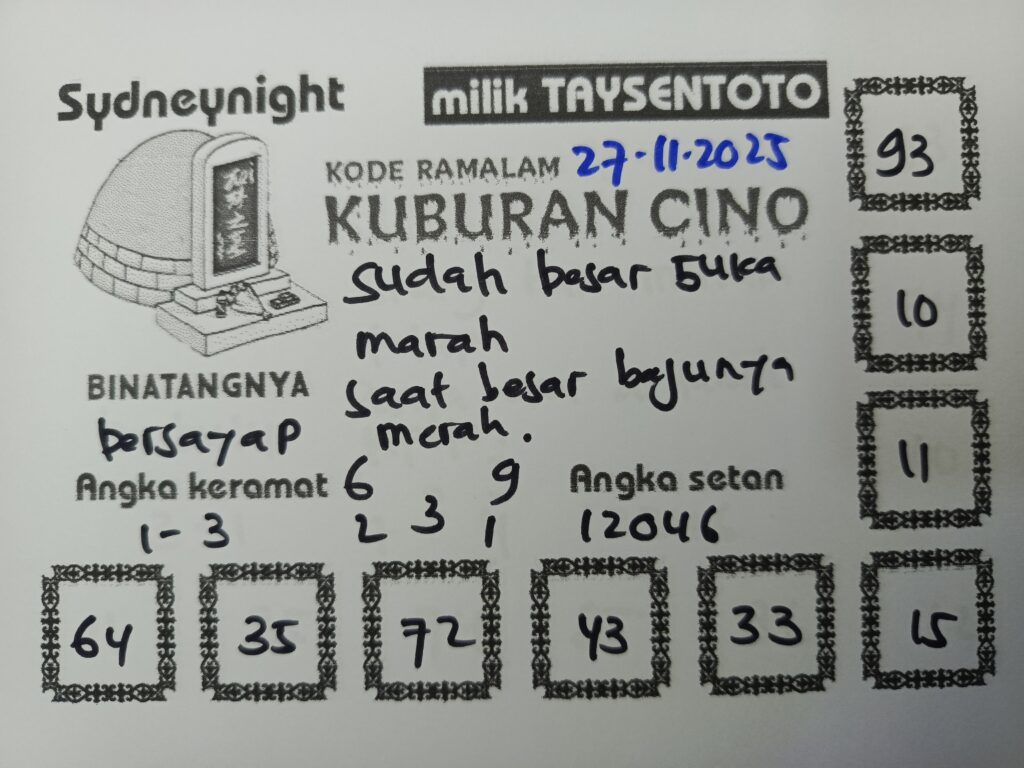 Sydneynight
milik TAYSENTOTO
KODE RAMALAM 27.11.2025
KUBURAN CINO
sudah besar suka
marah
saat besar bajunya
merah.
BINATANGNYA
bersayap
Angka keramat
1-3
6 9
3
2 1
Angka setan
12046
93
10
11
64 35 72 43 33 15